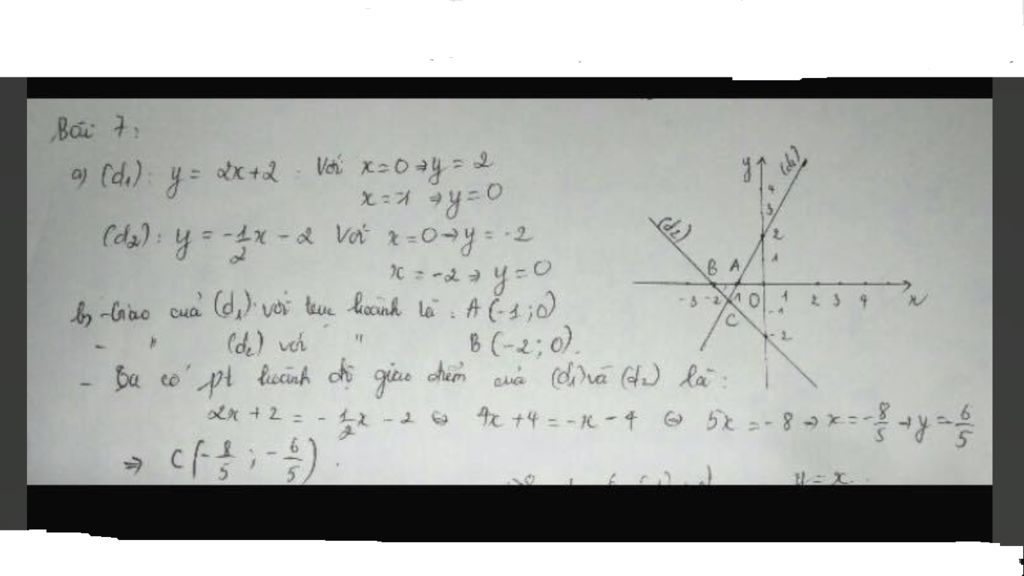 Bài 7:
a) (d₁): y = 2x+2 : Với x=0 → y = 2
x=-1 → y=0
(d₂): y = -1/2x - 2 Với x=0 → y = -2
x = -2 → y = 0
b) - Giao của (d₁) với trục hoành là : A (-1; 0)
- " (d₂) với " B (-2; 0).
- Ba có pt hoành độ giao điểm của (d₁) và (d₂) là :
2x + 2 = -1/2x - 2 ⇔ 4x + 4 = -x - 4 ⇔ 5x = -8 → x = -8/5 → y = 6/5
⇒ C (-8/5 ; -6/5) .
y = x
y (d₁)
4
3
2
1
(d₂)
B A
-3 -2 -1 O 1 2 3 4 x
C
-1
-2